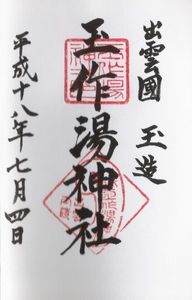 出雲國 玉造
玉作湯神社
平成十八年七月四日